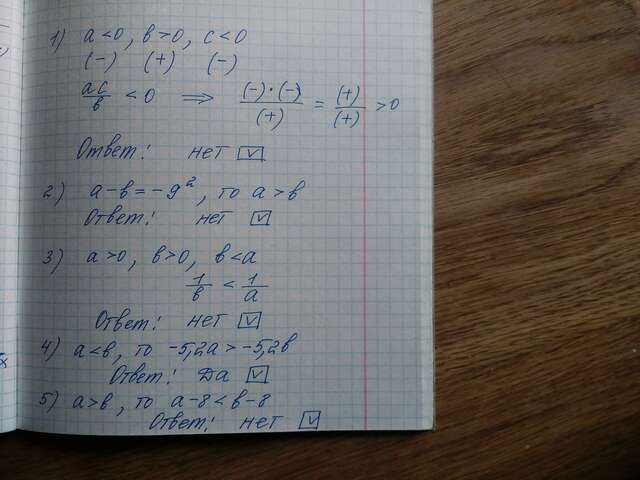 1) a<0, в>0, c<0
(-) (+) (-)
ac/в < 0 ⟹ (-)·(-)/(+) = (+)/(+) >0
Ответ: нет ☑
2) a-в=-9², то a>в
Ответ: нет ☑
3) a>0, в>0, в<a
1/в < 1/a
Ответ: нет ☑
4) a<в, то -5,2a>-5,2в
Ответ: Да ☑
5) a>в, то a-8<в-8
Ответ: нет ☑